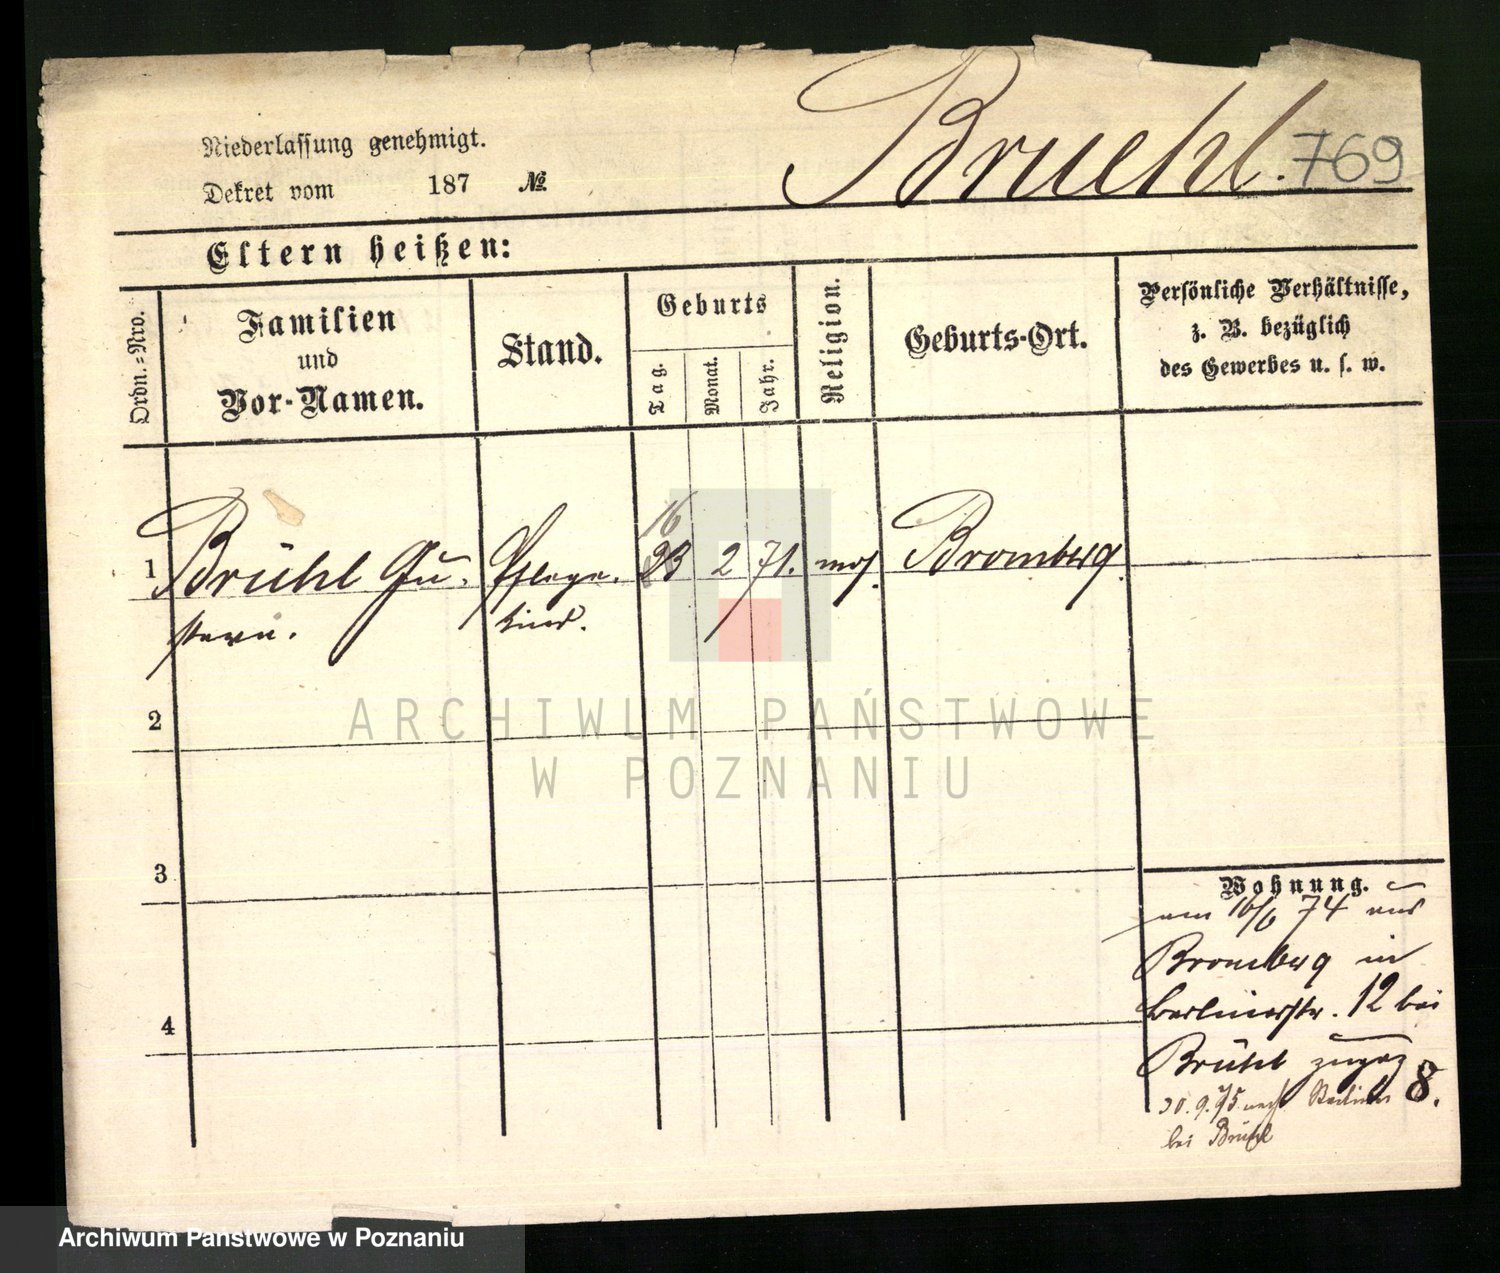 Niederlassung genehmigt.
Dekret vom 187 №
Bruehl. 769
Eltern heißen:
Ordn.=Nro.
Familien
und
Vor-Namen.
Stand.
Geburts
Tag.
Monat.
Jahr.
Religion.
Geburts-Ort.
Persönliche Verhältnisse,
z. B. bezüglich
des Gewerbes u. s. w.
16
1 Brühl Gu- Pflege- 23 2 71. mos. Bromberg.
stava. kind.
2
ARCHIWUM PAŃSTWOWE
W POZNANIU
3
4
Wohnung.
am 16/6 74 aus
Bromberg in
Berlinerstr. 12 bei
Brühl zugez
30.9.75 nach Berliner 8.
bei Brühl
Archiwum Państwowe w Poznaniu